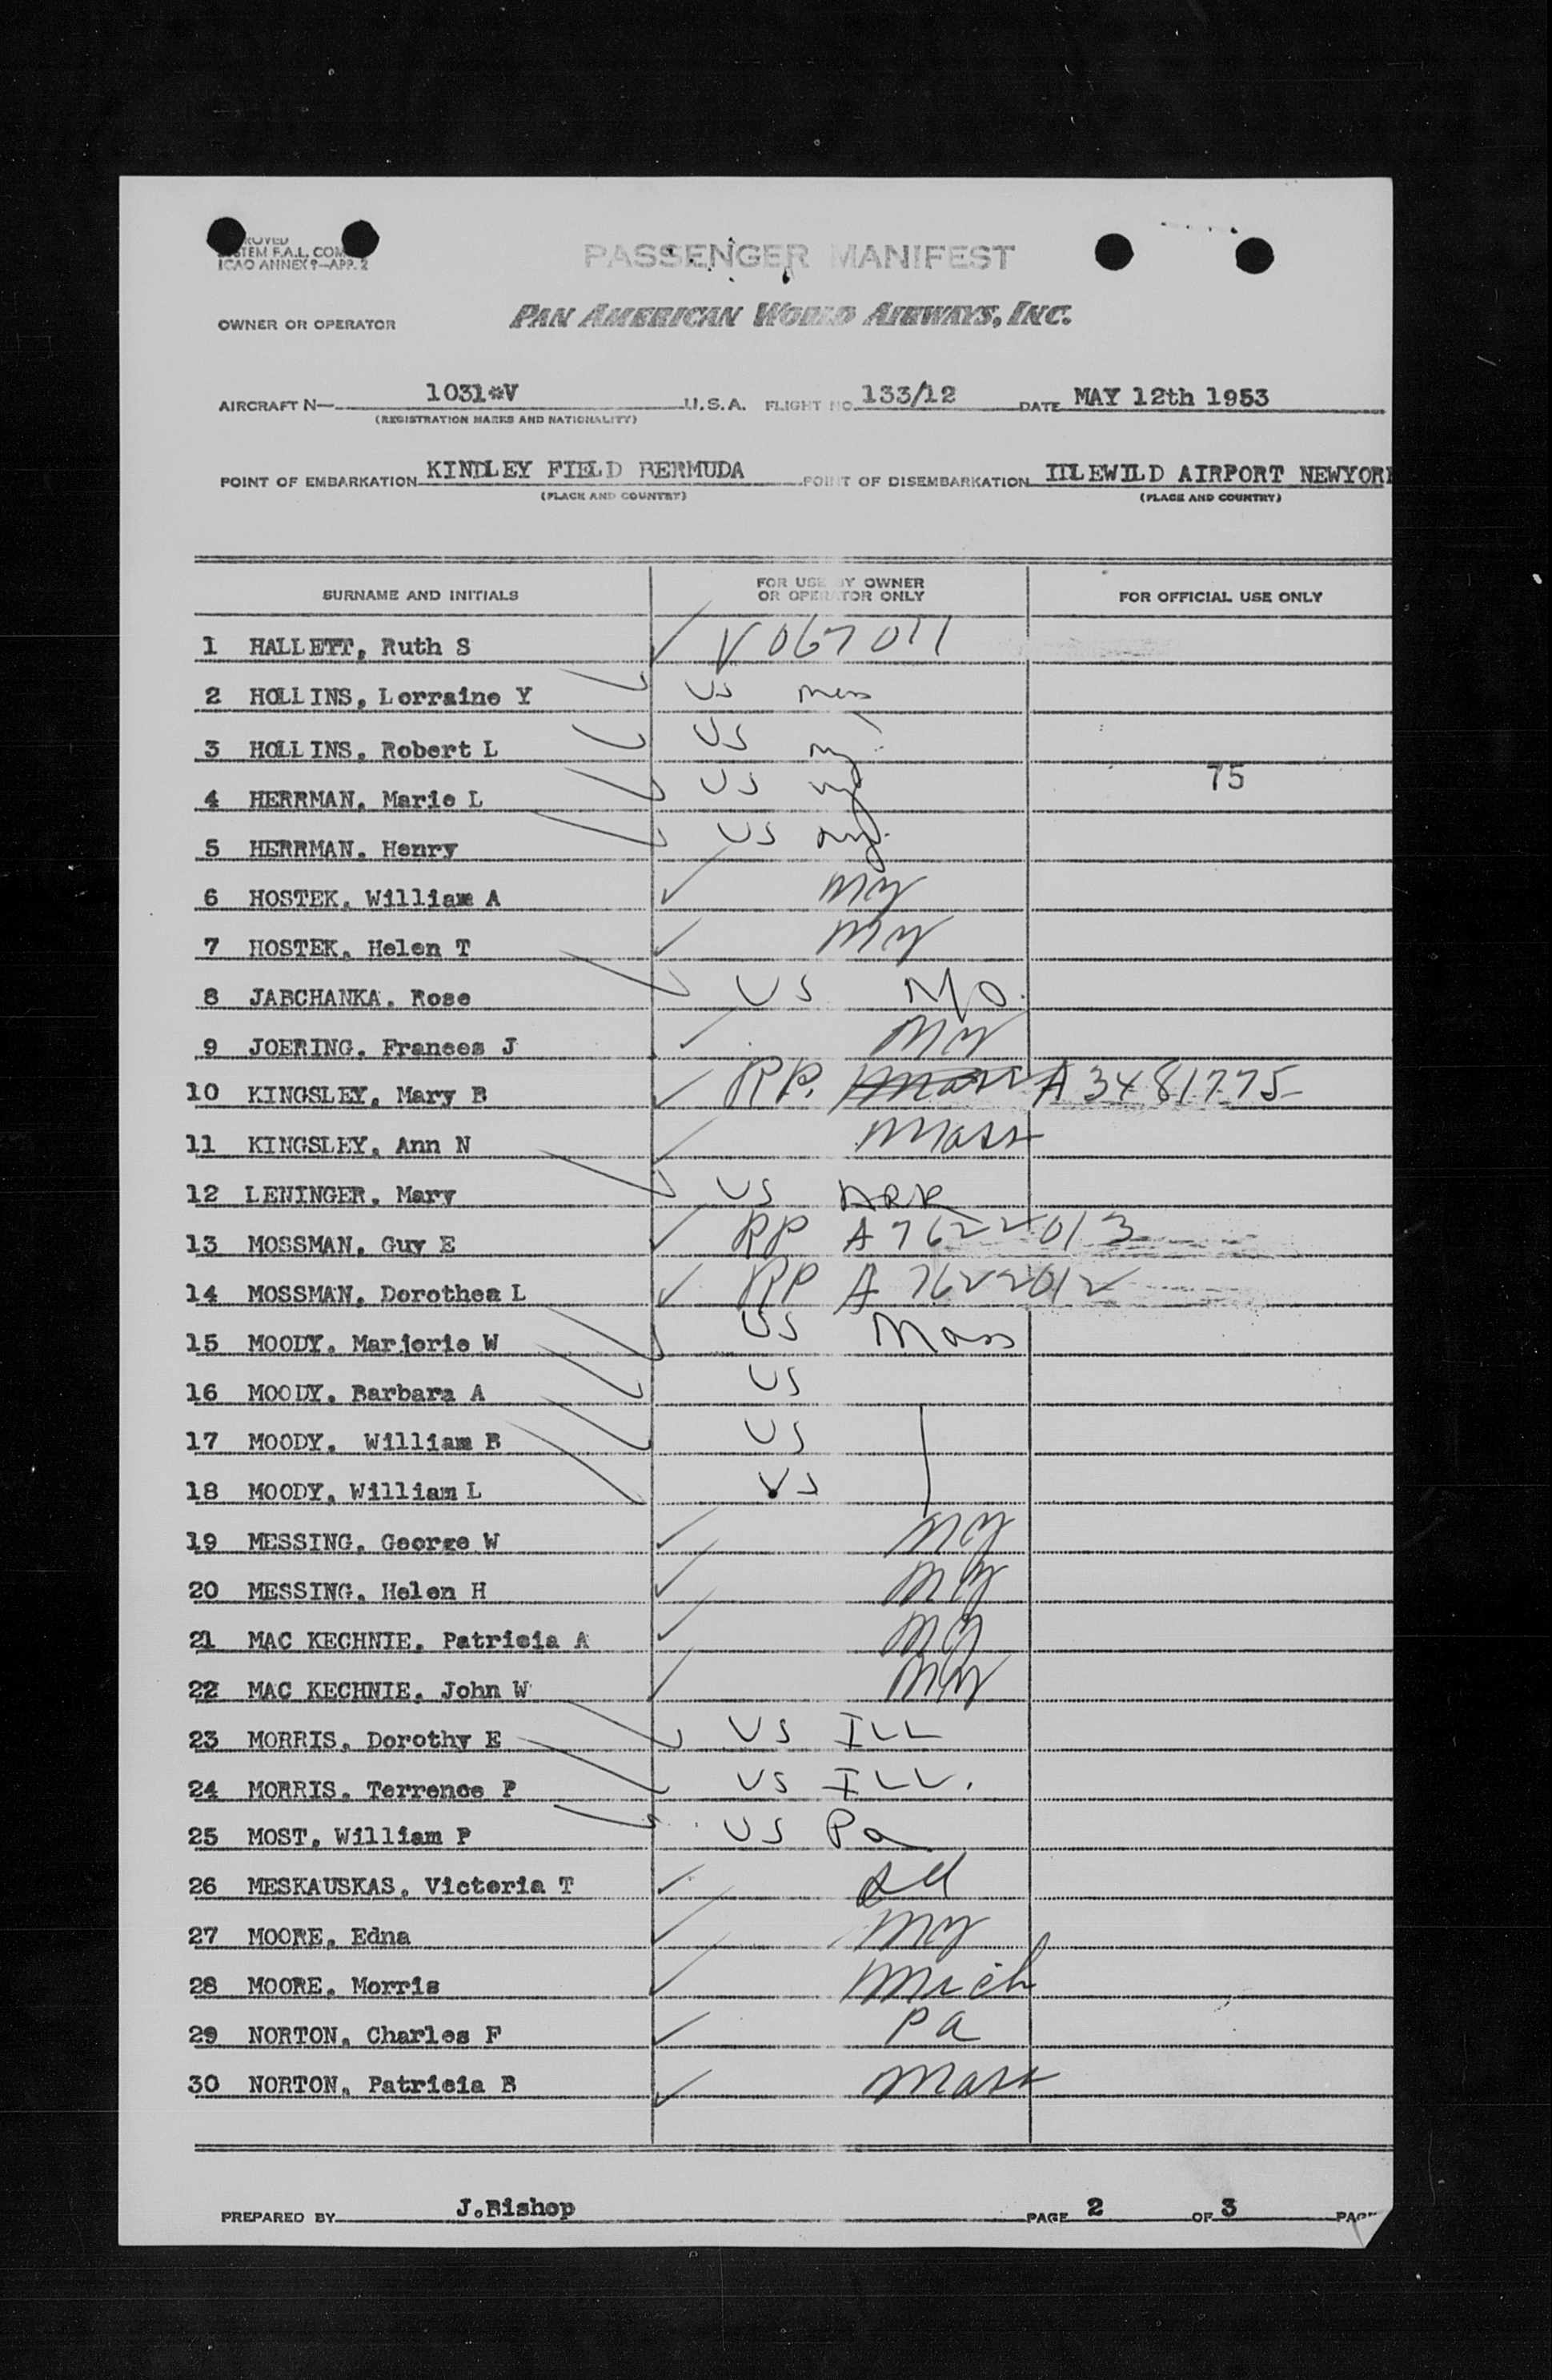 ROVED
STEM F.A.L. COM
ICAO ANNEX 9-APP. 2
PASSENGER MANIFEST
OWNER OR OPERATOR PAN AMERICAN WORLD AIRWAYS, INC.
AIRCRAFT N- 1031*V U.S.A. FLIGHT NO. 133/12 DATE MAY 12th 1953
(REGISTRATION MARKS AND NATIONALITY)
POINT OF EMBARKATION KINDLEY FIELD BERMUDA POINT OF DISEMBARKATION IILEWILD AIRPORT NEWYORK
(PLACE AND COUNTRY) (PLACE AND COUNTRY)
SURNAME AND INITIALS FOR USE BY OWNER OR OPERATOR ONLY FOR OFFICIAL USE ONLY
1 HALLETT, Ruth S ✓ V067011
2 HOLLINS, Lorraine Y US
3 HOLLINS, Robert L US
75
4 HERRMAN, Marie L US NY
5 HERRMAN, Henry US NY
6 HOSTEK, William A ✓ NY
7 HOSTEK, Helen T ✓ NY
8 JABCHANKA, Rose US MO.
9 JOERING, Frances J ✓ NY
10 KINGSLEY, Mary B ✓ RP. Mass A3481775
11 KINGSLEY, Ann N ✓ Mass
12 LENINGER, Mary US ARK
13 MOSSMAN, Guy E ✓ RP A7622013
14 MOSSMAN, Dorothea L ✓ RP A7622012
15 MOODY, Marjorie W US Mass
16 MOODY, Barbara A US
17 MOODY, William B US
18 MOODY, William L US
19 MESSING, George W ✓ NY
20 MESSING, Helen H ✓ NY
21 MAC KECHNIE, Patricia A ✓ NY
22 MAC KECHNIE, John W ✓ NY
23 MORRIS, Dorothy E US ILL
24 MORRIS, Terrence P US ILL.
25 MOST, William P US Pa
26 MESKAUSKAS, Victoria T ✓
27 MOORE, Edna ✓ NY
28 MOORE, Morris ✓ Mich
29 NORTON, Charles F ✓ Pa
30 NORTON, Patricia B ✓ Mass
PREPARED BY J.Bishop PAGE 2 OF 3